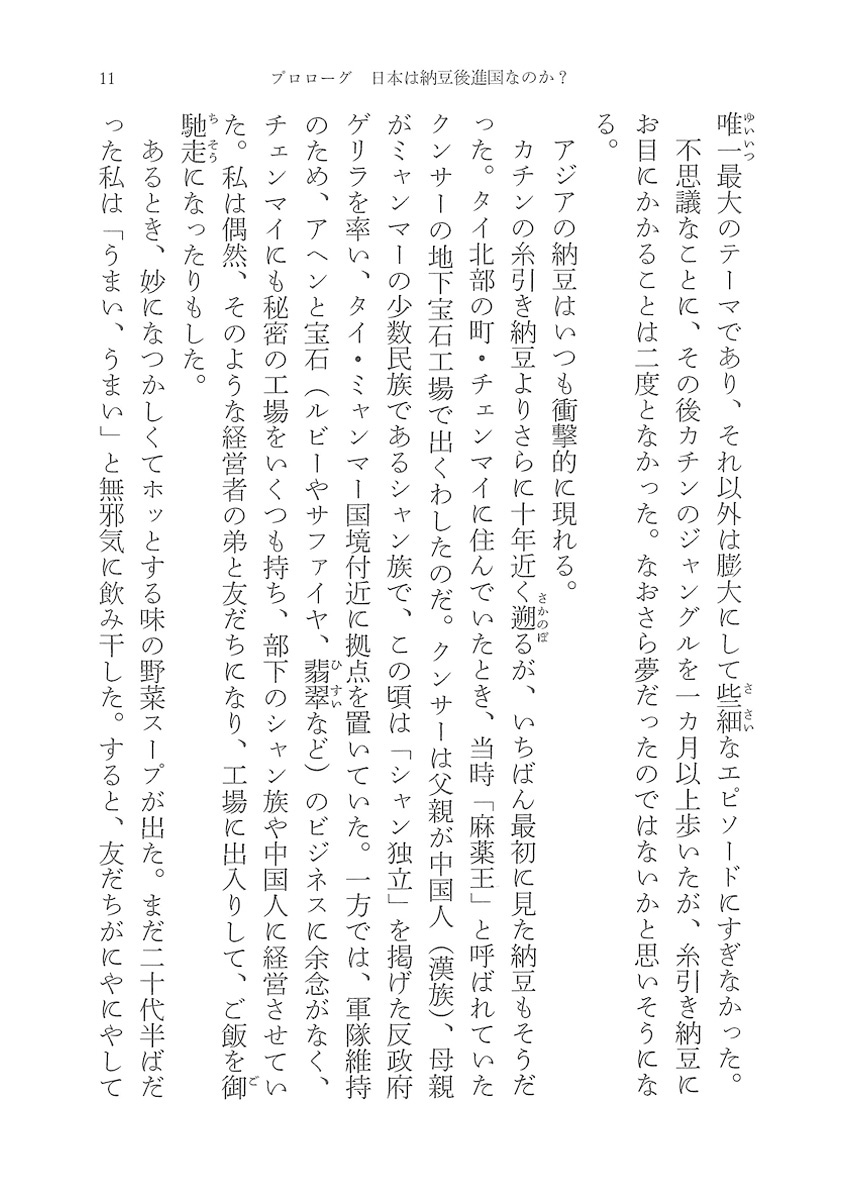 11
プロローグ　日本は納豆後進国なのか？
唯一最大のテーマであり、それ以外は膨大にして些細なエピソードにすぎなかった。
不思議なことに、その後カチンのジャングルを一カ月以上歩いたが、糸引き納豆に
お目にかかることは二度となかった。なおさら夢だったのではないかと思いそうにな
る。
アジアの納豆はいつも衝撃的に現れる。
カチンの糸引き納豆よりさらに十年近く遡るが、いちばん最初に見た納豆もそうだ
った。タイ北部の町・チェンマイに住んでいたとき、当時「麻薬王」と呼ばれていた
クンサーの地下宝石工場で出くわしたのだ。クンサーは父親が中国人（漢族）、母親
がミャンマーの少数民族であるシャン族で、この頃は「シャン独立」を掲げた反政府
ゲリラを率い、タイ・ミャンマー国境付近に拠点を置いていた。一方では、軍隊維持
のため、アヘンと宝石（ルビーやサファイヤ、翡翠など）のビジネスに余念がなく、
チェンマイにも秘密の工場をいくつも持ち、部下のシャン族や中国人に経営させてい
た。私は偶然、そのような経営者の弟と友だちになり、工場に出入りして、ご飯を御
馳走になったりもした。
あるとき、妙になつかしくてホッとする味の野菜スープが出た。まだ二十代半ばだ
った私は「うまい、うまい」と無邪気に飲み干した。すると、友だちがにやにやして